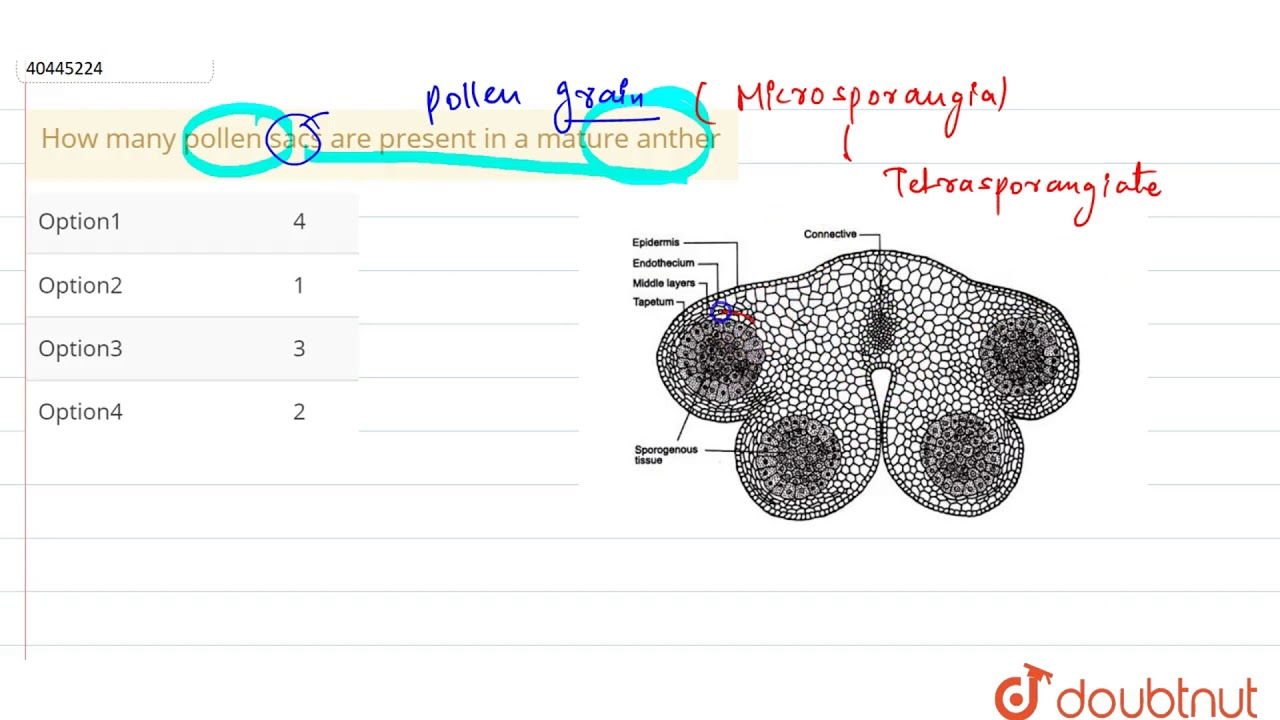 40445224
pollen grain ( Microsporangia)
How many pollen sacs are present in a mature anther
Tetrasporangiate
Option1 4
Option2 1
Option3 3
Option4 2
Connective
Epidermis
Endothecium
Middle layers
Tapetum
Sporogenous
tissue
doubtnut